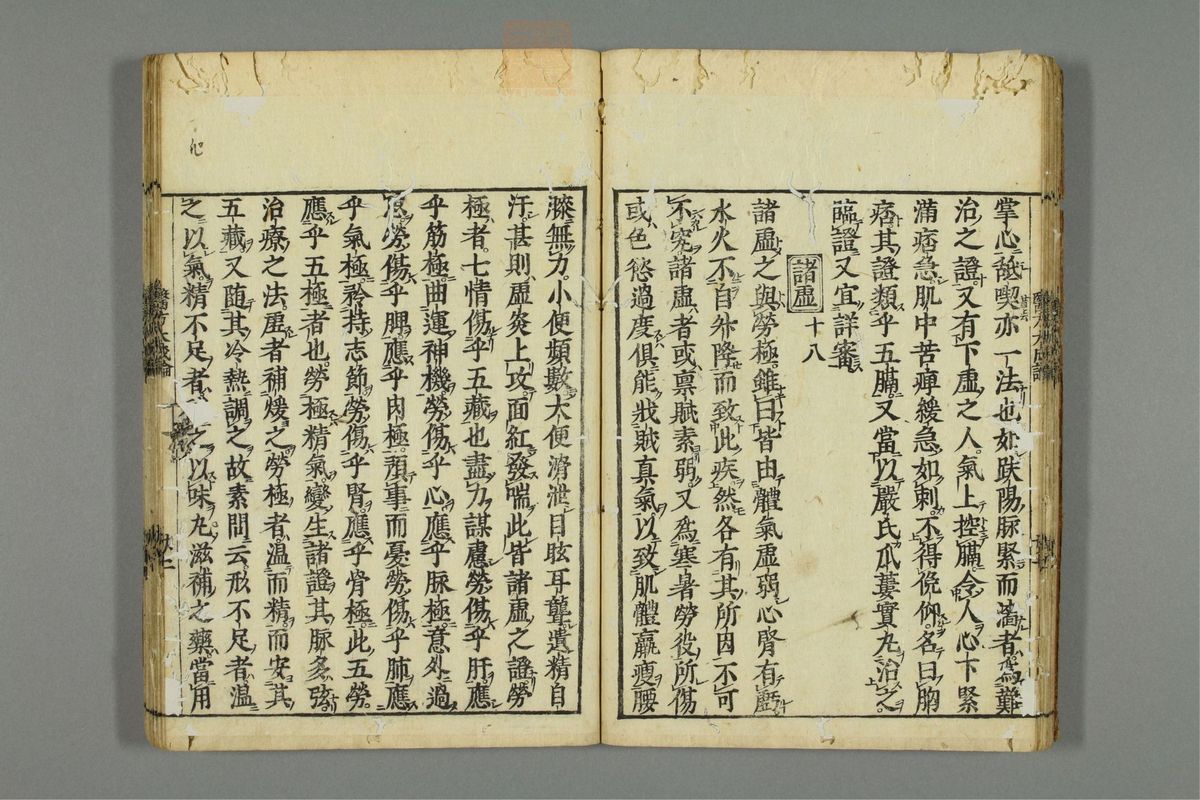 掌心䑛喫亦一法也如趺陽脉緊而濇者爲難
治之證又有下虛之人氣上控膈令人心下緊
滿痞急肌中苦痺緩急如刺不得俛仰名曰胸
痞其證類乎五膈又當以嚴氏瓜蔞實丸治之
臨證又宜詳審
諸虛 十八
諸虛之與勞極雖曰皆由體氣虛弱心腎有虧
水火不自升降而致此疾然各有其所因不可
不究諸虛者或禀賦素弱又爲寒暑勞役所傷
或色慾過度俱能戕賊真氣以致肌體羸瘦腰
膝無力小便頻數大便滑泄目眩耳聾遺精自
汗甚則虛炎上攻面紅發喘此皆諸虛之證勞
極者七情傷乎五藏也盡力謀慮勞傷乎肝應
乎筋極曲運神機勞傷乎心應乎脉極意外過
思勞傷乎脾應乎肉極預事而憂勞傷乎肺應
乎氣極矜持志節勞傷乎腎應乎骨極此五勞
應乎五極者也勞極精氣變生諸證其脉多弦
治療之法虛者補煖之勞極者温而精而安其
五藏又随其冷熱調之故素問云形不足者温
之以氣精不足者 之以味凡滋補之藥當用